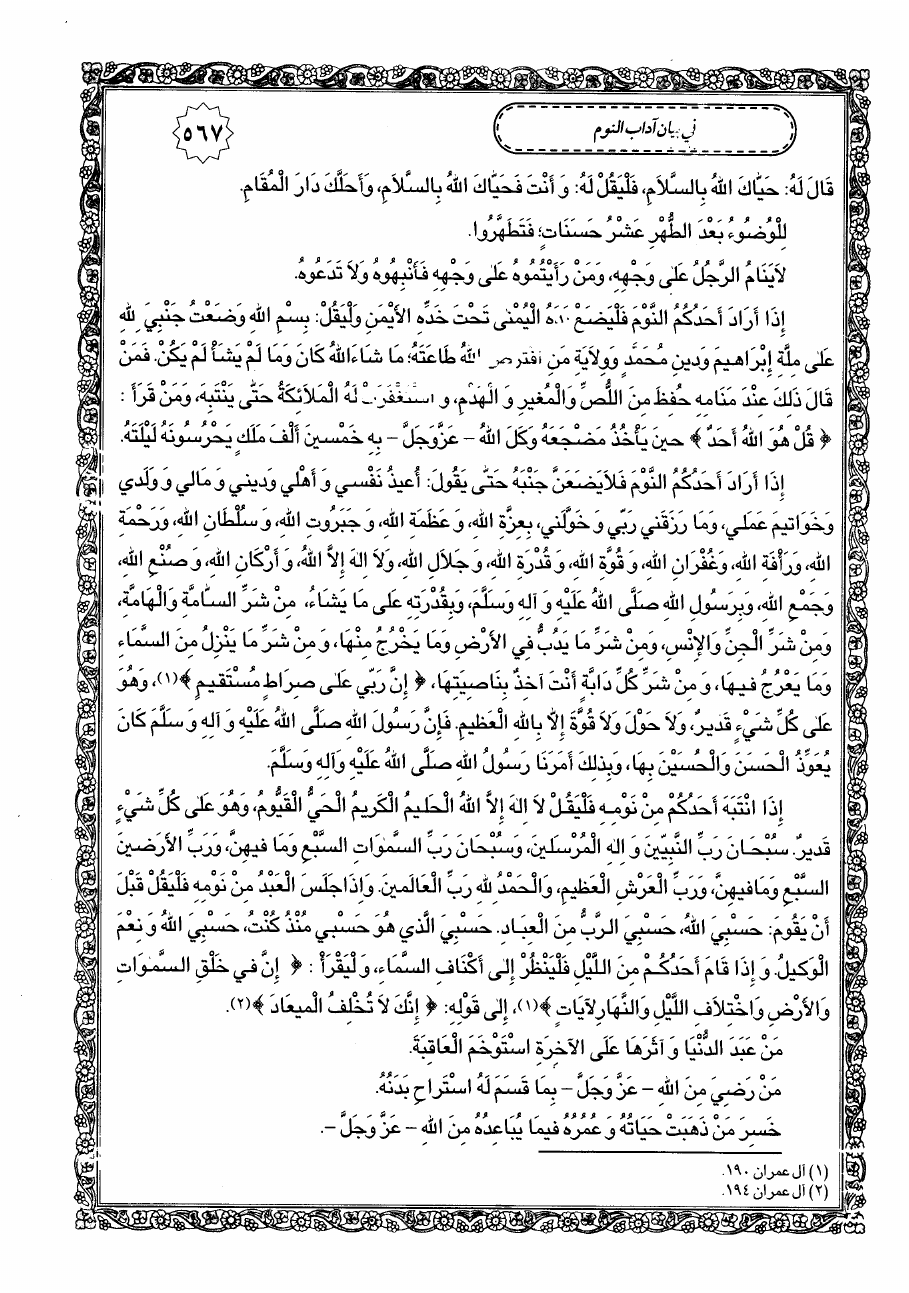 في بيان آداب النوم
٥٦٧
قَالَ لَهُ: حَيَّاكَ اللهُ بِالسَّلاَمِ، فَلْيَقُلْ لَهُ: وَ أَنْتَ فَحَيَّاكَ اللهُ بِالسَّلاَمِ، وَأَحَلَّكَ دَارَ الْمُقَامِ.
لِلْوُضُوءُ بَعْدَ الطُّهْرِ عَشْرُ حَسَنَاتٍ؛ فَتَطَهَّرُوا.
لاَيَنَامُ الرَّجُلُ عَلى وَجْهِهِ، وَمَنْ رَأَيْتُمُوهُ عَلى وَجْهِهِ فَأَنْبِهُوهُ وَلاَ تَدَعُوهُ.
إِذَا أَرَادَ أَحَدُكُمُ النَّوْمَ فَلْيَضَعْ الْيُمْنى تَحْتَ خَدِّهِ الأَيْمَنِ وَلْيَقُلْ: بِسْمِ اللهِ وَضَعْتُ جَنْبِي لِلهِ
عَلى مِلَّةِ إِبْرَاهِيمَ وَدِينِ مُحَمَّدٍ وَوِلاَيَةِ مَنِ افترص اللهُ طَاعَتَهُ؛ مَا شَاءَ اللهُ كَانَ وَمَا لَمْ يَشَأْ لَمْ يَكُنْ. فَمَنْ
قَالَ ذلِكَ عِنْدَ مَنَامِهِ حُفِظَ مِنَ اللِّصِّ وَالْمُغِيرِ وَ الْهَدْمِ، وَ اسْتَغْفَرَتْ لَهُ الْمَلاَئِكَةُ حَتّى يَنْتَبِهَ، وَمَنْ قَرَأَ :
﴿ قُلْ هُوَ اللهُ أَحَدٌ ﴾ حِينَ يَأْخُذُ مَضْجَعَهُ وَكَّلَ اللهُ – عَزَّوَجَلَّ – بِهِ خَمْسِينَ أَلْفَ مَلَكٍ يَحْرُسُونَهُ لَيْلَتَهُ.
إِذَا أَرَادَ أَحَدُكُمُ النَّوْمَ فَلاَيَضَعَنَّ جَنْبَهُ حَتّى يَقُولَ: أُعِيذُ نَفْسِي وَ أَهْلِي وَدِينِي وَ مَالِي وَ وَلَدِي
وَخَوَاتِيمَ عَمَلِي، وَمَا رَزَقَنِي رَبِّي وَ خَوَّلَنِي، بِعِزَّةِ اللهِ، وَ عَظَمَةِ اللهِ، وَ جَبَرُوتِ اللهِ، وَ سُلْطَانِ اللهِ، وَرَحْمَةِ
اللهِ، وَرَأْفَةِ اللهِ، وَغُفْرَانِ اللهِ، وَ قُوَّةِ اللهِ، وَ قُدْرَةِ اللهِ، وَ جَلاَلِ اللهِ، وَلاَ إِلهَ إِلاَّ اللهُ، وَ أَرْكَانِ اللهِ، وَ صُنْعِ اللهِ،
وَ جَمْعِ اللهِ، وَبِرَسُولِ اللهِ صَلَّى اللهُ عَلَيْهِ وَ آلِهِ وَسَلَّمَ، وَبِقُدْرَتِهِ عَلى مَا يَشَاءُ، مِنْ شَرِّ السَّامَّةِ وَالْهَامَّةِ،
وَمِنْ شَرِّ الْجِنِّ وَالإِنْسِ، وَمِنْ شَرِّ مَا يَدُبُّ فِي الأَرْضِ وَمَا يَخْرُجُ مِنْهَا، وَ مِنْ شَرِّ مَا يَنْزِلُ مِنَ السَّمَاءِ
وَمَا يَعْرُجُ فِيهَا، وَ مِنْ شَرِّ كُلِّ دَابَّةٍ أَنْتَ آخِذٌ بِنَاصِيَتِهَا، ﴿ إِنَّ رَبِّي عَلى صِرَاطٍ مُسْتَقِيمٍ ﴾(١)، وَهُوَ
عَلى كُلِّ شَيْءٍ قَدِيرٌ، وَلاَ حَوْلَ وَلاَ قُوَّةَ إِلاَّ بِاللهِ الْعَظِيمِ. فَإِنَّ رَسُولَ اللهِ صَلَّى اللهُ عَلَيْهِ وَ آلِهِ وَ سَلَّمَ كَانَ
يُعَوِّذُ الْحَسَنَ وَالْحُسَيْنَ بِهَا، وَبِذلِكَ أَمَرَنَا رَسُولُ اللهِ صَلَّى اللهُ عَلَيْهِ وَآلِهِ وَسَلَّمَ.
إِذَا انْتَبَهَ أَحَدُكُمْ مِنْ نَوْمِهِ فَلْيَقُلْ لاَ إِلهَ إِلاَّ اللهُ الْحَلِيمُ الْكَرِيمُ الْحَيُّ الْقَيُّومُ، وَهُوَ عَلى كُلِّ شَيْءٍ
قَدِيرٌ. سُبْحَانَ رَبِّ النَّبِيِّينَ وَ إِلهِ الْمُرْسَلِينَ، وَسُبْحَانَ رَبِّ السَّموَاتِ السَّبْعِ وَمَا فِيهِنَّ، وَرَبِّ الأَرَضِينَ
السَّبْعِ وَمَافِيهِنَّ، وَرَبِّ الْعَرْشِ الْعَظِيمِ، وَالْحَمْدُ لِلهِ رَبِّ الْعَالَمِينَ. وَإِذَا جَلَسَ الْعَبْدُ مِنْ نَوْمِهِ فَلْيَقُلْ قَبْلَ
أَنْ يَقُومَ: حَسْبِيَ اللهُ، حَسْبِيَ الرَّبُّ مِنَ الْعِبَادِ. حَسْبِيَ الَّذِي هُوَ حَسْبِي مُنْذُ كُنْتُ، حَسْبِيَ اللهُ وَ نِعْمَ
الْوَكِيلُ. وَ إِذَا قَامَ أَحَدُكُمْ مِنَ اللَّيْلِ فَلْيَنْظُرْ إِلى أَكْنَافِ السَّمَاءِ، وَ لْيَقْرَأْ : ﴿ إِنَّ فِي خَلْقِ السَّموَاتِ
وَالأَرْضِ وَ اخْتِلاَفِ اللَّيْلِ وَالنَّهَارِ لآيَاتٍ ﴾(١)، إِلى قَوْلِهِ: ﴿ إِنَّكَ لاَ تُخْلِفُ الْمِيعَادَ ﴾(٢).
مَنْ عَبَدَ الدُّنْيَا وَ آثَرَهَا عَلَى الآخِرَةِ اسْتَوْخَمَ الْعَاقِبَةَ.
مَنْ رَضِيَ مِنَ اللهِ – عَزَّ وَجَلَّ – بِمَا قَسَمَ لَهُ اسْتَرَاحَ بَدَنُهُ.
خَسِرَ مَنْ ذَهَبَتْ حَيَاتُهُ وَ عُمُرُهُ فِيمَا يُبَاعِدُهُ مِنَ اللهِ – عَزَّ وَجَلَّ –.
(١) آل عمران ١٩٠.
(٢) آل عمران ١٩٤.